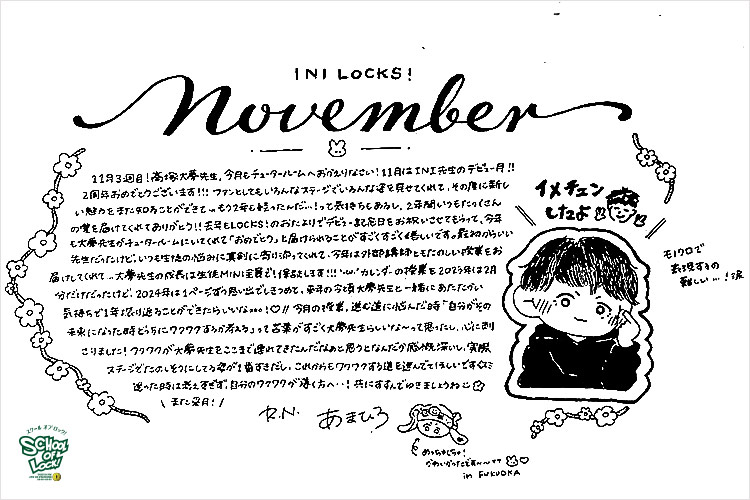 INI LOCKS!
November
11月3週目!髙塚大夢先生、今月もチュータールームへおかえりなさい!11月はINI先生のデビュー月!!
2周年おめでとうございます!!!ファンとしてもいろんなステージでいろんな姿を見せてくれて、その度に新し
い魅力をまた知ることができて…もう2年も経ったんだ…!って気持ちもあるし、2年間いつもたっくさん
の愛を届けてくれてありがとう!!去年もLOCKS!のおたよりでデビュー記念日をお祝いさせてもらって、今年
も大夢先生がチュータールームにいてくれて「おめでとう」と届けられることがすごくすごく嬉しいです。最初からいい
先生だったけど、いつも生徒の悩みに真剣に寄り添ってくれて、今年は外部講師ともたのしい授業をお
届けしてくれて…大夢先生の成長は生徒MINI全員で保証します!!! カレンダーの授業も2023年は2月
分だけだったけど、2024年は1ページずつ思い出でしきつめて、来年の今頃大夢先生と一緒にあたたかい
気持ちで1年振り返ることができたらいいなぁ…!♡//今月の授業、進む道に悩んだ時「自分がその
未来になった時どうにワクワクするか考える」って言葉がすごく大夢先生らしいな〜って思ったし、心に刺
こりました!ワクワクが大夢先生をここまで連れてきたんだなぁと思うとなんだか感慨深いし、実際
ステージでたのしそうにしてる姿が1番すきだし、これからもワクワクする道を選んでてほしいです。ぐに
迷った時は考えすぎず、自分のワクワクが導く方へ…!共にすすんでゆきましょうね
\ また来月! /
R.N. あまひろ
イメチェン
したよ
モノクロで
表現するの
難しい…!涙
めっちゃくちゃ!
かわいかったです〜〜
in FUKUOKA
スクールオブロック!
SCHOOL
OF
LOCK!